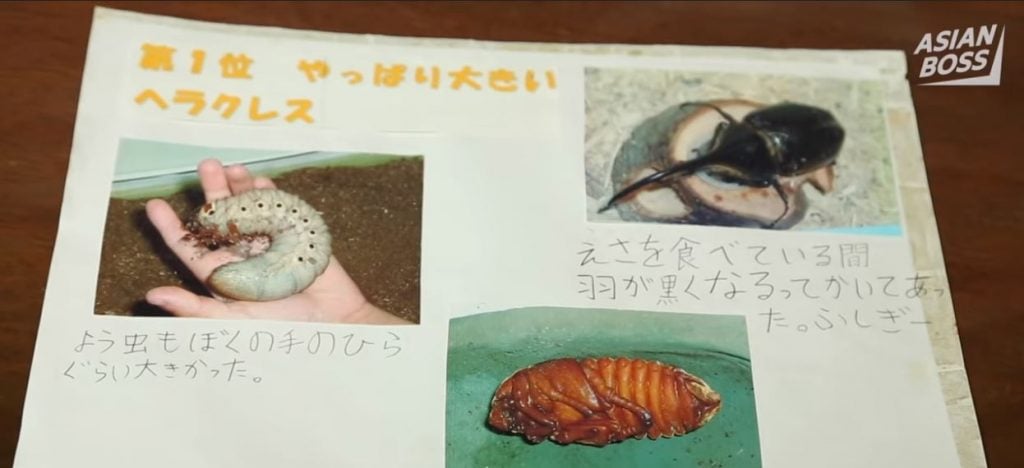 ASIAN
BOSS
第1位 やっぱり大きい
ヘラクレス
えさを食べている間
羽が黒くなるってかいてあっ
た。ふしぎー
よう虫もぼくの手のひら
ぐらい大きかった。